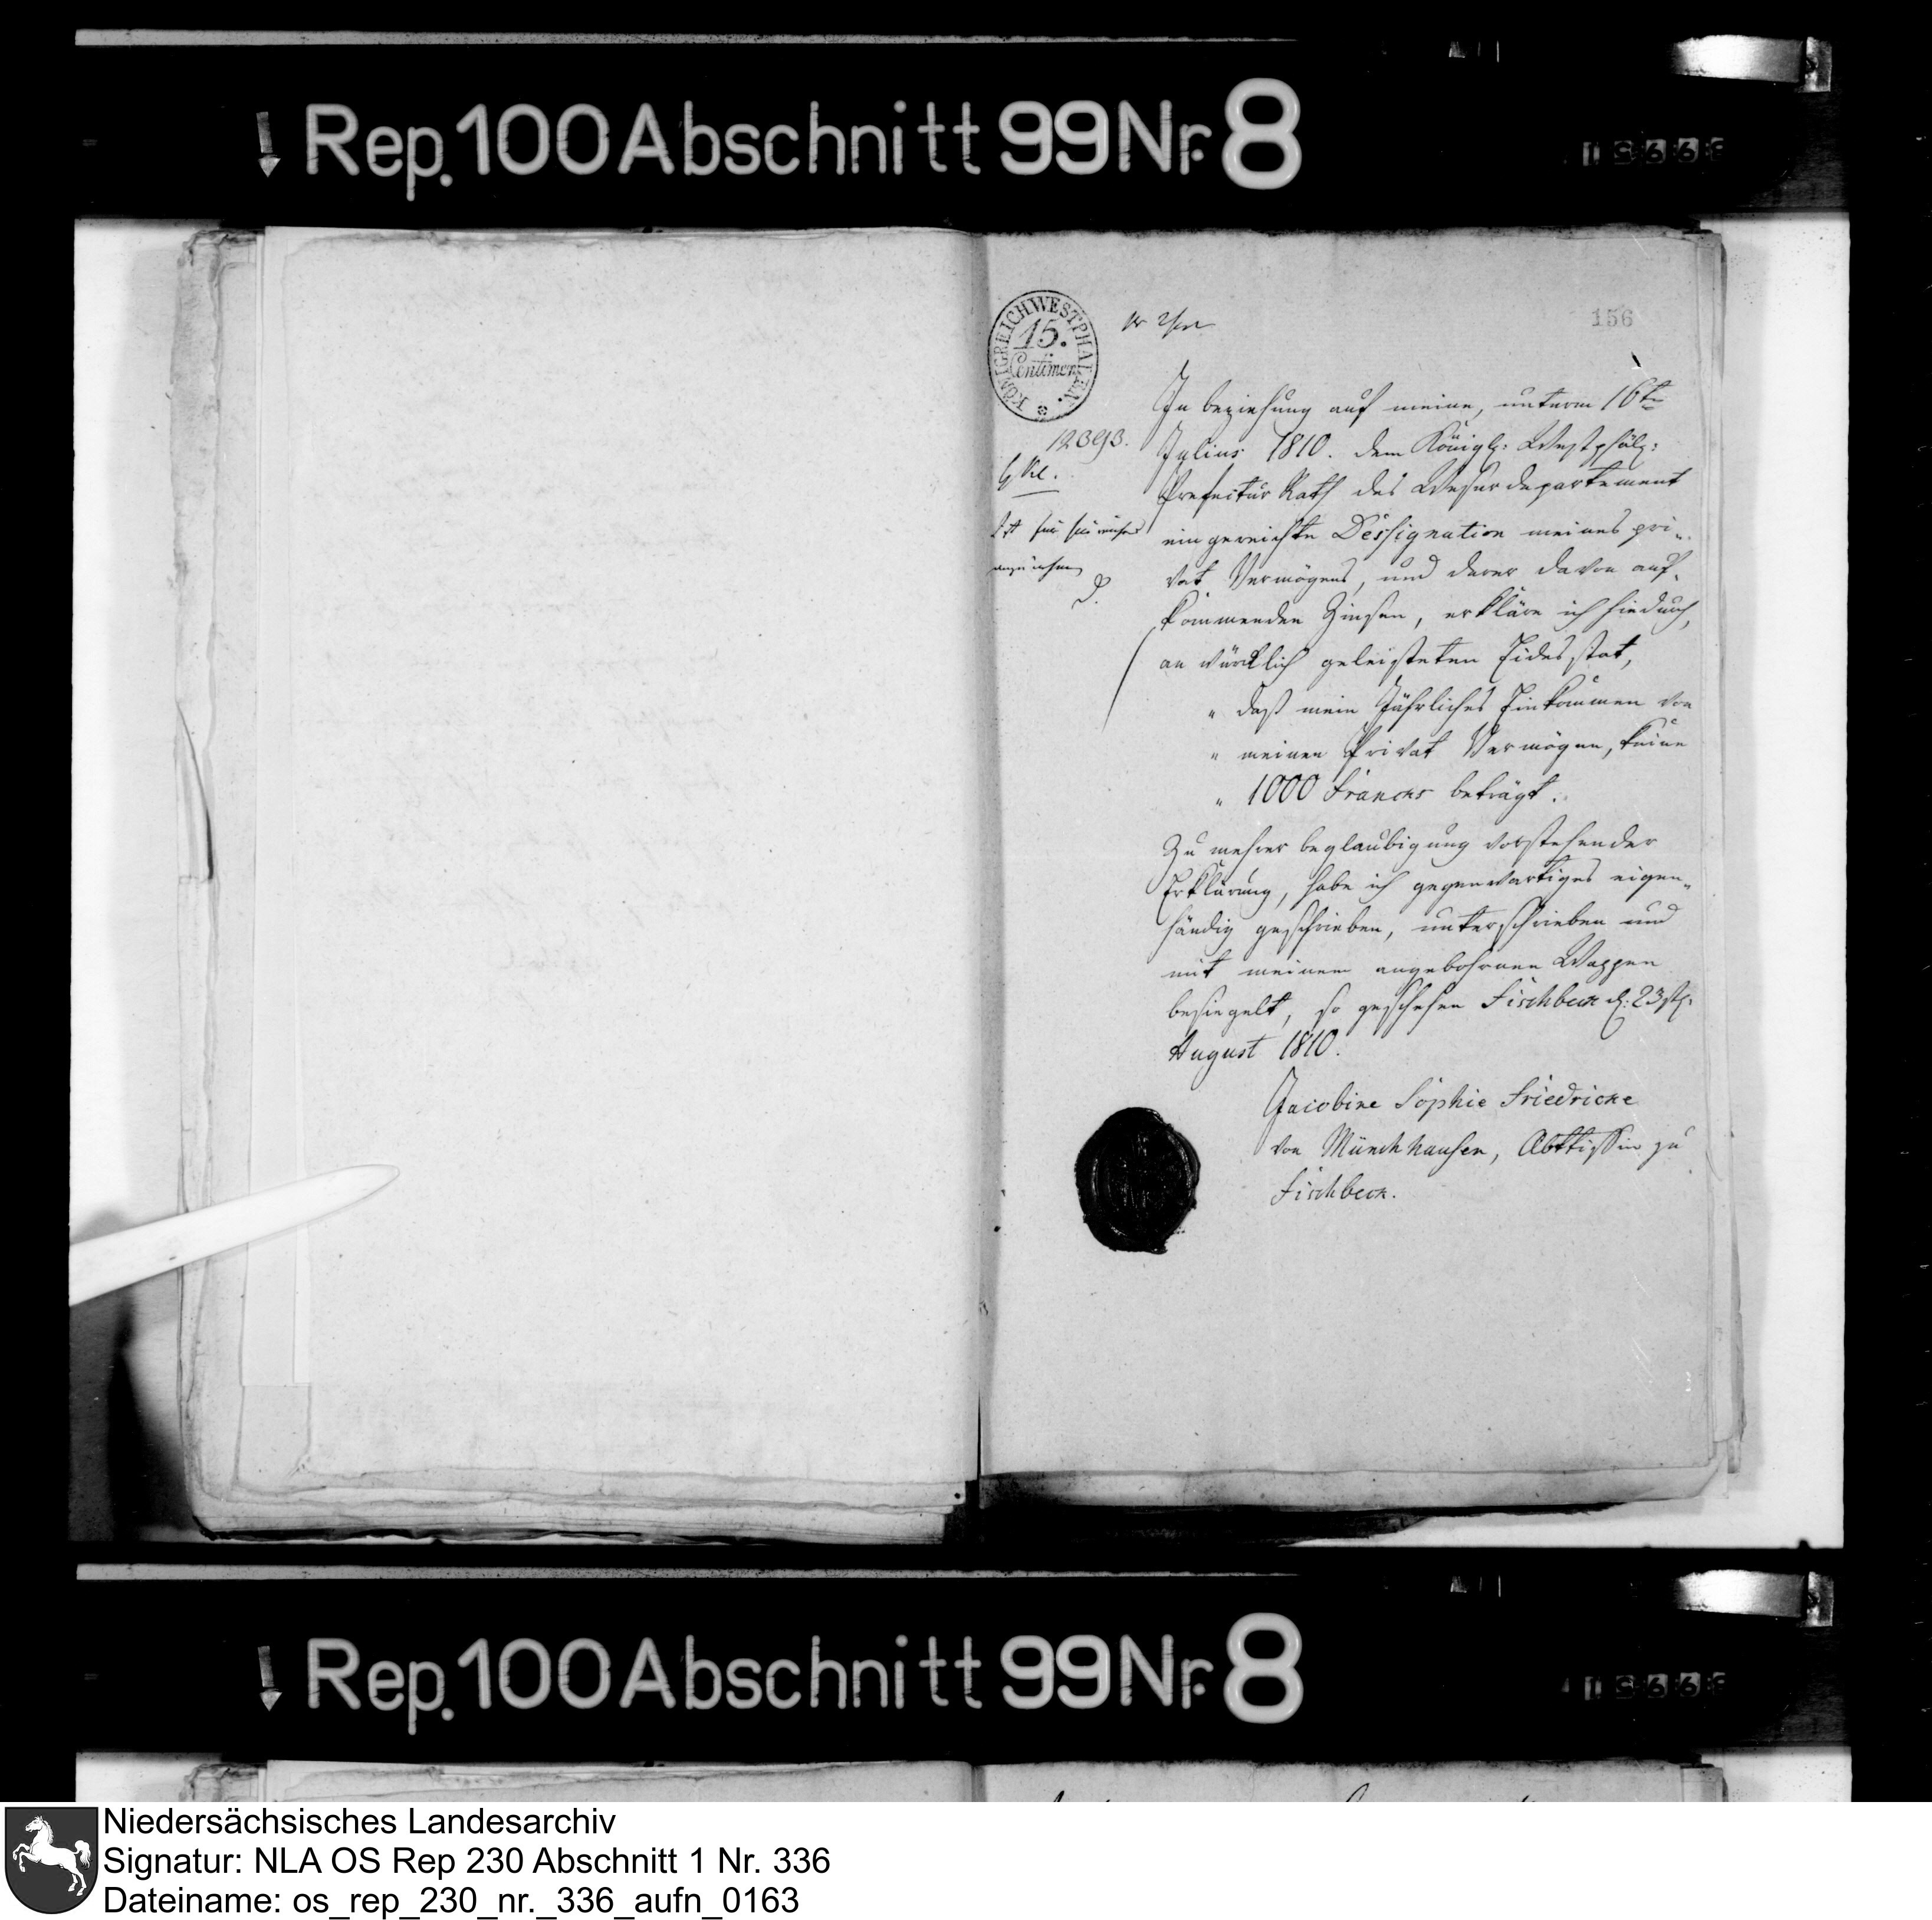 Rep. 100 Abschnitt 99 Nr. 8
KÖNIGREICH WESTPHALEN.
15.
Centimen
156
12393.
In beziehung auf meine, unterm 16ten
Julius 1810. dem Königl: Westphäl:
Prefectur Rath des Weserdepartement
eingereichte Dessignation meines pri-
vat Vermögens, und derer davon auf-
kommenden Zinsen, erkläre ich hiedurch,
an würcklich geleisteten Eides stat,
" daß mein Jährliches Einkommen von
" meinen Privat Vermögen, keine
" 1000 Francks beträgt.
Zu mehrer beglaubigung vorstehender
Erklärung, habe ich gegenwärtiges eigen-
händig geschrieben, unterschrieben und
mit meinem angebohrnen Wappen
besiegelt, so geschehen Fischbeck d: 23st:
August 1810.
Jacobine Sophie Friedricke
von Münchhausen, Abttissin zu
Fischbeck.
Rep. 100 Abschnitt 99 Nr. 8
Niedersächsisches Landesarchiv
Signatur: NLA OS Rep 230 Abschnitt 1 Nr. 336
Dateiname: os_rep_230_nr._336_aufn_0163